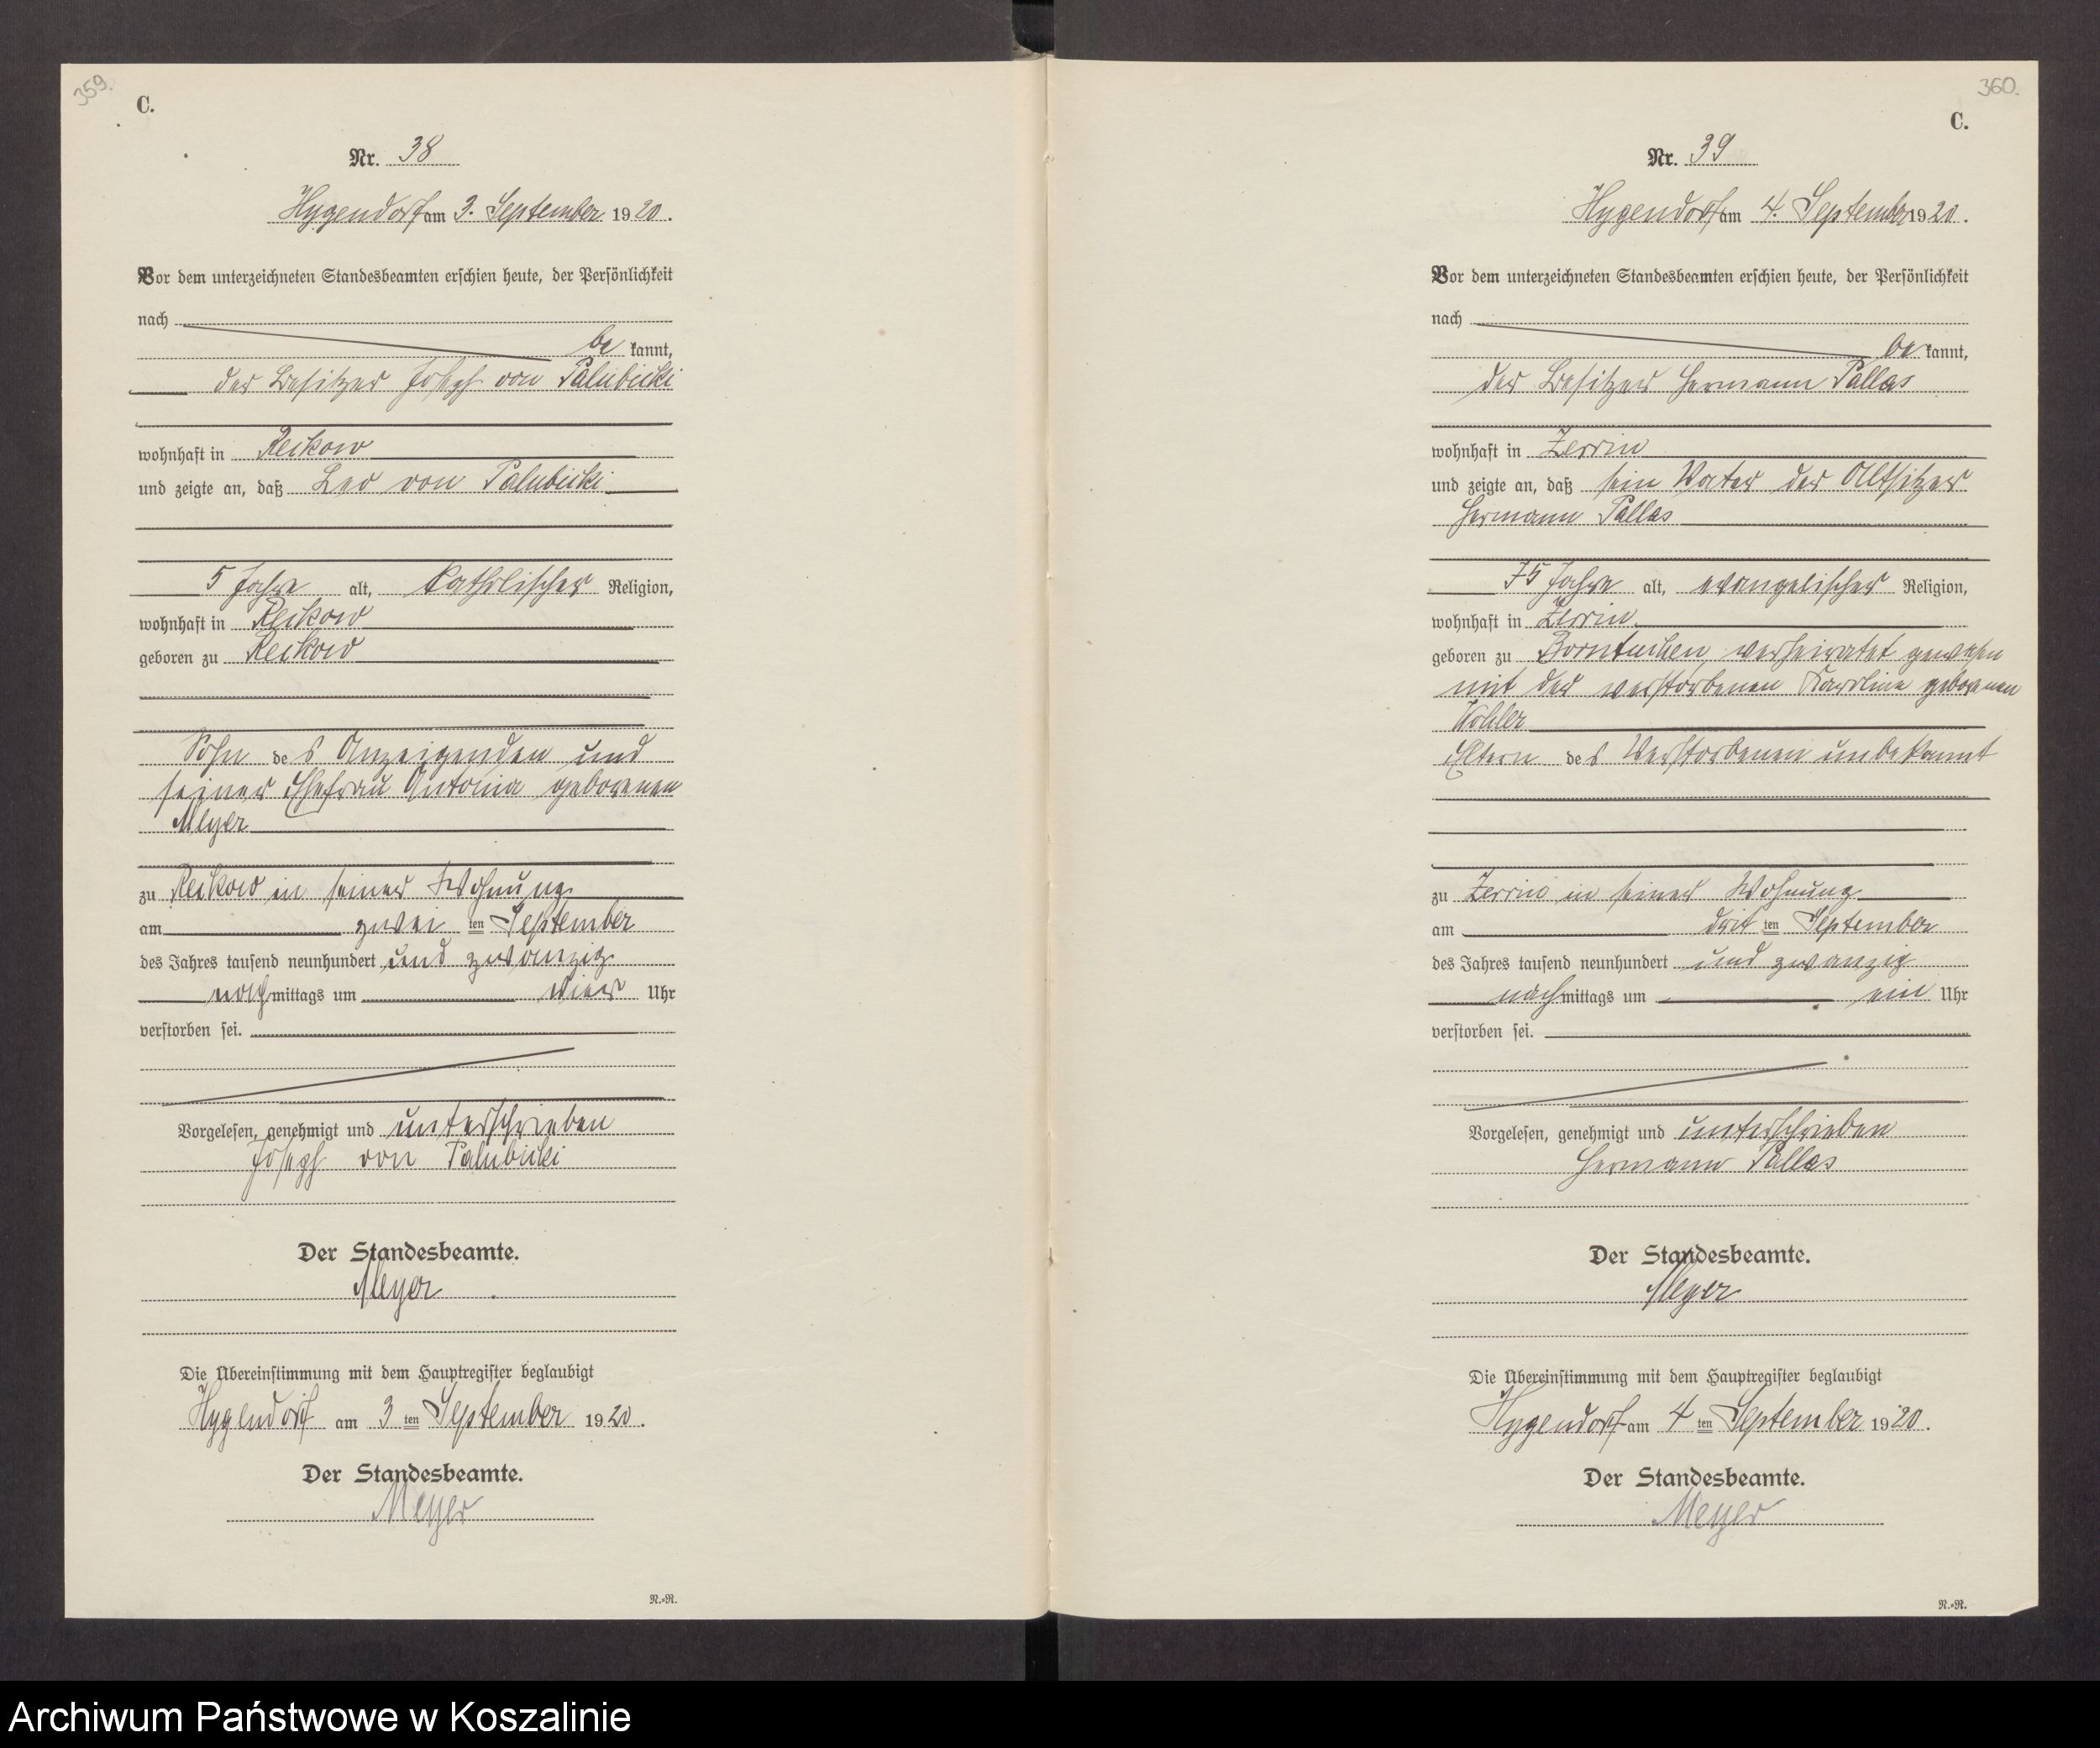 359.
C.
Nr. 38
Hygendorf am 3. September 1920.
Vor dem unterzeichneten Standesbeamten erschien heute, der Persönlichkeit
nach
be kannt,
der Besitzer Joseph von Palubicki
wohnhaft in Reckow
und zeigte an, daß Leo von Palubicki
5 Jahre alt, katholischer Religion,
wohnhaft in Reckow
geboren zu Reckow
Sohn des Anzeigenden und
seiner Ehefrau Antonia geborenen
Meyer
zu Reckow in seiner Wohnung
am zwei ten September
des Jahres tausend neunhundert und zwanzig
nachmittags um vier Uhr
verstorben sei.
Vorgelesen, genehmigt und unterschrieben
Joseph von Palubicki
Der Standesbeamte.
Meyer
Die Übereinstimmung mit dem Hauptregister beglaubigt
Hygendorf am 3 ten September 1920.
Der Standesbeamte.
Meyer
N.=N.
360.
C.
Nr. 39
Hygendorf am 4. September 1920.
Vor dem unterzeichneten Standesbeamten erschien heute, der Persönlichkeit
nach
be kannt,
der Besitzer Hermann Pallas
wohnhaft in Zerrin
und zeigte an, daß sein Vater der Altsitzer
Hermann Pallas
75 Jahre alt, evangelischer Religion,
wohnhaft in Zerrin
geboren zu Borntuchen, verheiratet gewesen
mit der verstorbenen Karoline geborenen
Kohler
Eltern des Verstorbenen unbekannt
zu Zerrin in seiner Wohnung
am drit ten September
des Jahres tausend neunhundert und zwanzig
nachmittags um ein Uhr
verstorben sei.
Vorgelesen, genehmigt und unterschrieben
Hermann Pallas
Der Standesbeamte.
Meyer
Die Übereinstimmung mit dem Hauptregister beglaubigt
Hygendorf am 4 ten September 1920.
Der Standesbeamte.
Meyer
N.=N.
Archiwum Państwowe w Koszalinie